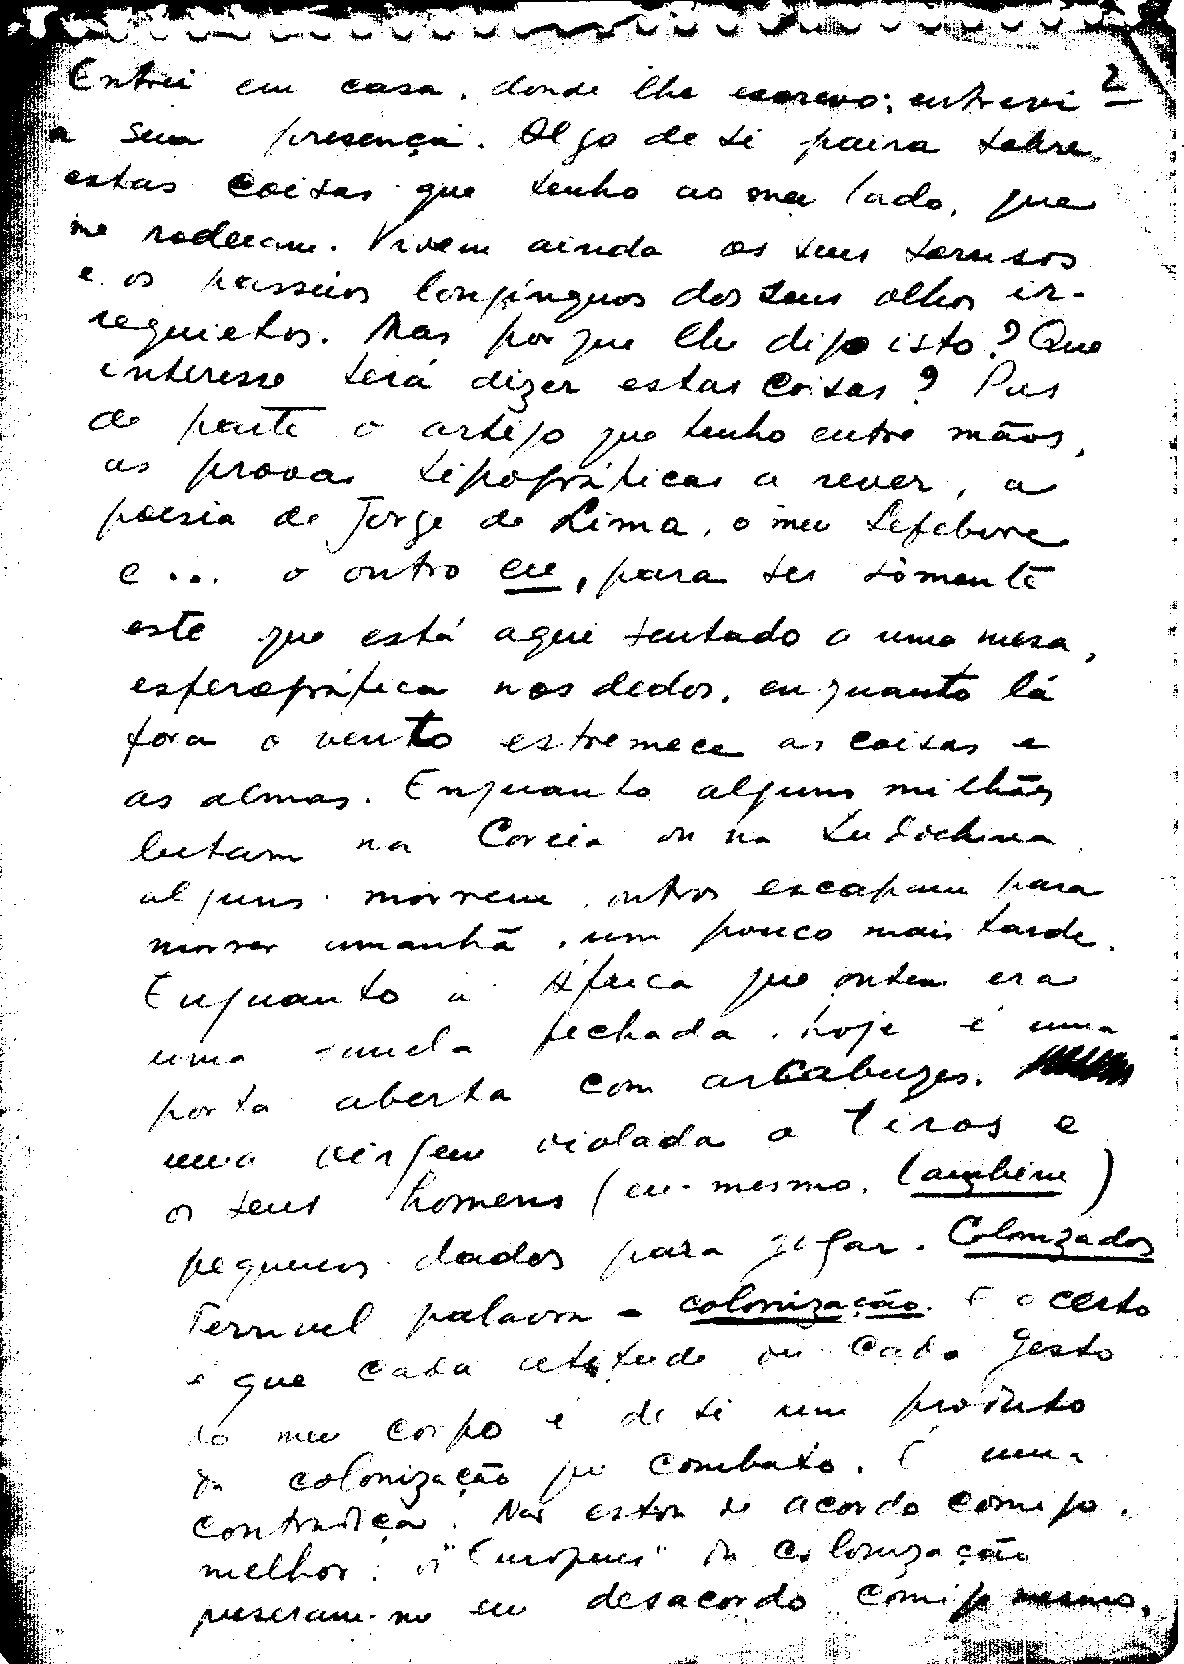 2
Entrei em casa, donde lhe escrevo; entrevi
a sua presença. Algo de si paira sobre
estas coisas que tenho ao meu lado, que
me rodeiam. Vivem ainda os seus sorrisos
e os passeios longínquos dos seus olhos ir-
requietos. Mas porque lhe digo isto? Que
interesse terá dizer estas coisas? Pus
de parte o artigo que tenho entre mãos,
as provas tipográficas a rever, a
poesia de Jorge de Lima, o meu Lefebvre
e ... o outro eu, para ser sòmente
este que está aqui sentado a uma mesa,
esferográfica nos dedos, enquanto lá
fora o vento estremece as coisas e
as almas. Enquanto alguns milhões
lutam na Coreia ou na Indochina,
alguns morrem, outros escapam para
morrer amanhã, um pouco mais tarde.
Enquanto a África que ontem era
uma janela fechada, hoje é uma
porta aberta com arcabuzes.
uma virgem violada a tiros e
os seus homens (eu-mesmo, também)
pequenos dados para jogar. Colonizados
Terrível palavra - colonização. E o certo
é que cada atitude ou cada gesto
do meu corpo é de si um produto
da colonização que combato. É uma
contradição. Não estou de acordo comigo,
melhor: os "Europeus" da colonização
puseram-me em desacordo comigo mesmo.